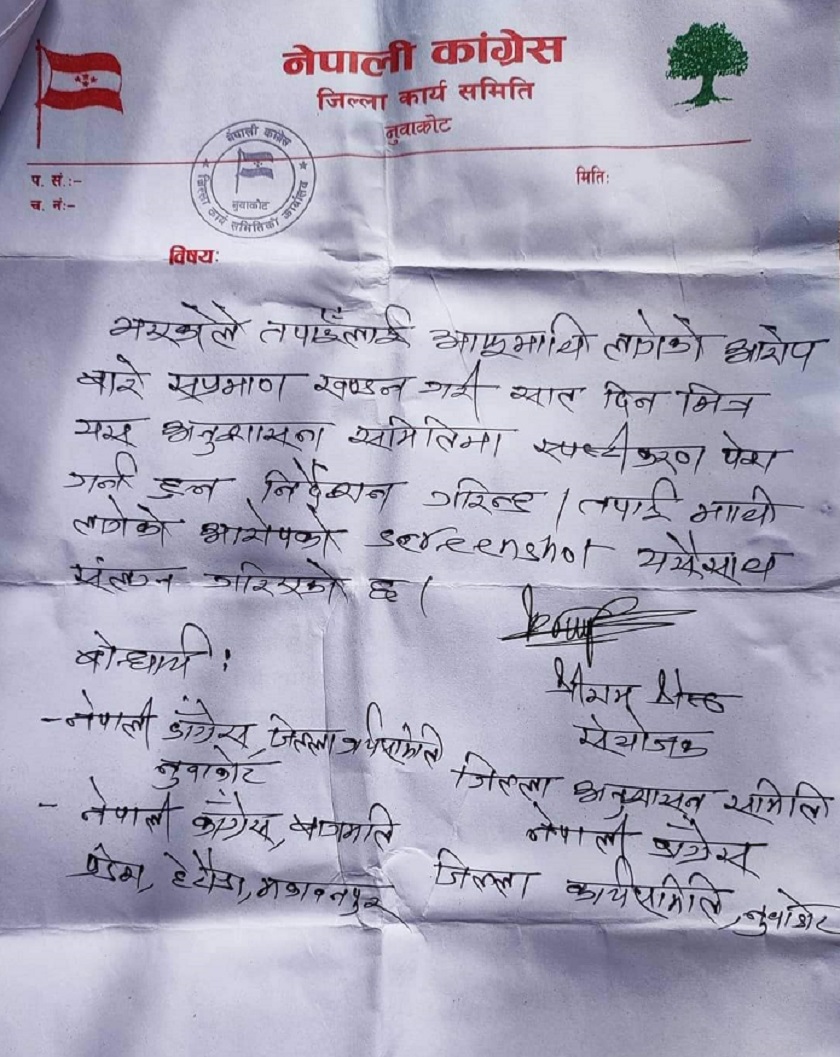 नेपाली कांग्रेस
जिल्ला कार्य समिति
नुवाकोट
नेपाली कांग्रेस
नुवाकोट
जिल्ला कार्य समितिको कार्यालय
प. सं.:-
मितिः
च. नंः-
विषयः
तपाईँलाई आफूमाथि लागेको आरोप
बारे सप्रमाण खण्डन गरी सात दिन भित्र
यस अनुशासन समितिमा स्पष्टीकरण पेश
गर्नु हुन निर्देशन गरिन्छ । तपाई माथी
लागेको आरोपको screenshot यसैसाथ
संलग्न गरिएको छ ।
बोधार्थ :
श्रीराम श्रेष्ठ
संयोजक
- नेपाली काँग्रेस, जिल्ला कार्यसमिति
नुवाकोट
जिल्ला अनुशासन समिति
- नेपाली काँग्रेस, बागमति
नेपाली काँग्रेस
प्रदेश, हेटौडा, मकवानपुर
जिल्ला कार्यसमिति, नुवाकोट